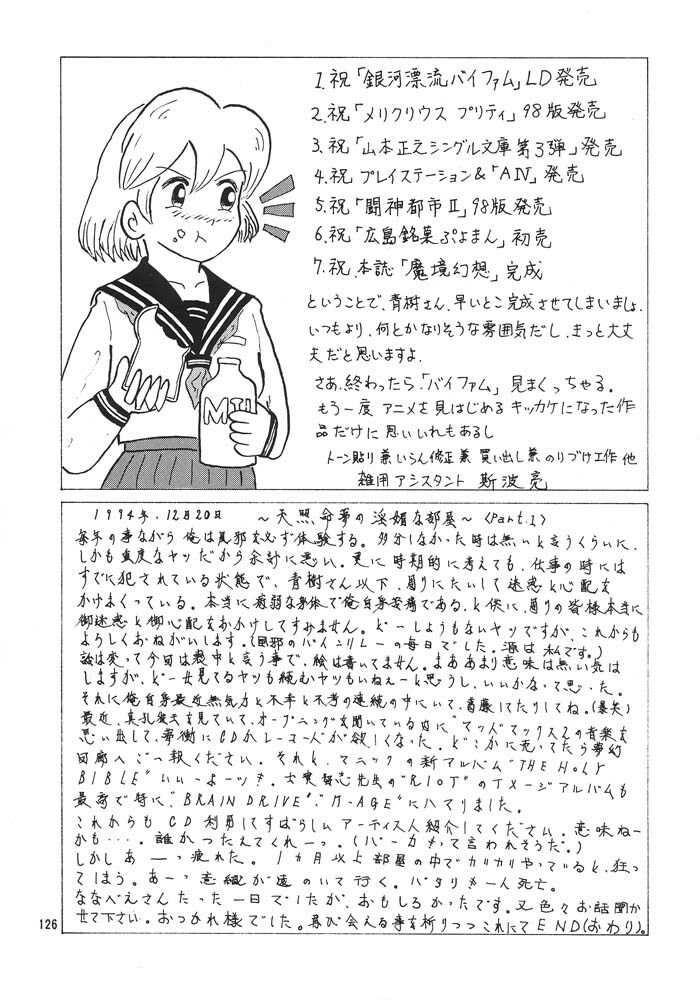 1.祝「銀河漂流バイファム」LD発売
2.祝「メリクリウス プリティ」98版発売
3.祝「山本正之シングル文庫第3弾」発売
4.祝 プレイステーション&「A.Ⅳ」発売
5.祝「闘神都市Ⅱ」98版発売
6.祝「広島銘菓ぷよまん」初売
7.祝.本誌「魔境幻想」完成
ということで、青樹さん、早いとこ完成させてしまいましょ.
いつもより、何とかなりそうな雰囲気だし、きっと大丈
夫だと思いますよ.
さあ.終わったら「バイファム」見まくっちゃる。
もう一度 アニメを見はじめる キッカケになった作
品だけに 思いいれもあるし
トーン貼り兼いらん修正兼 買い出し兼 のりづけ工作 他
雑用アシスタント 斯波亮
MIL
1994年.12月20日 〜天照命夢の淫媚な部屋〜〈Part.1〉
毎年の事ながら俺は風邪を必ず体験する。多分しなかった時は無いと言うくらいに、
しかも重度なヤツだから余計に悪い。更に時期的に考えても、仕事の時には
すでに犯されている状態で、青樹さん以下、周りにたいして迷惑と心配を
かけまくっている。本当に病弱な身体で俺自身苦痛である。と供に、周りの皆様本当に
御迷惑と御心配をおかけしてすみません。どーしようもないヤツですが、これからも
よろしくおねがいします。(風邪のバイニリレーの毎日でした。源は私です。)
話は変って今回は喪中と言う事で、絵は書いてません。まああまり意味は無い気は
しますが、ど一せ見てるヤツも読むヤツもいねぇーと思うし、いいかなって思った。
それに俺自身最近無気力と不幸と不考の連続の中にいて、葛藤してたりしてね。(爆笑)
最近、真孔雀王を見ていて、オープニングを聞いている内に"マッドマックス2の音楽を
思い出して、夢衝にCDかレコードが欲しくなった。どこかに売ってたら夢幻
回廊へご一報ください。それと、マニックの新アルバム"THE HOLY
BIBLE"いいーよーッ！。士貴智志先生の"RIOT"のイメージアルバムも
最高で特に"BRAIN DRIVE""M-AGE"にハマりました。
これからも CD利用してすばらしい アーティスト紹介してください。意味ねー
かも…。誰かつたえてくれーっ。(バーカもって言われそうだ。)
しかし あーっ疲れた。1カ月以上部屋の中でガリガリやっていると、狂っ
てしまう。あーっ意識が遠のいて行く。バタリ！一人死亡。
ななべえさん たった一日でしたが、おもしろかったです。又色々お話聞か
せて下さい。おつかれ様でした。再び会える事を祈りつつこれにて END(おわり)。
126